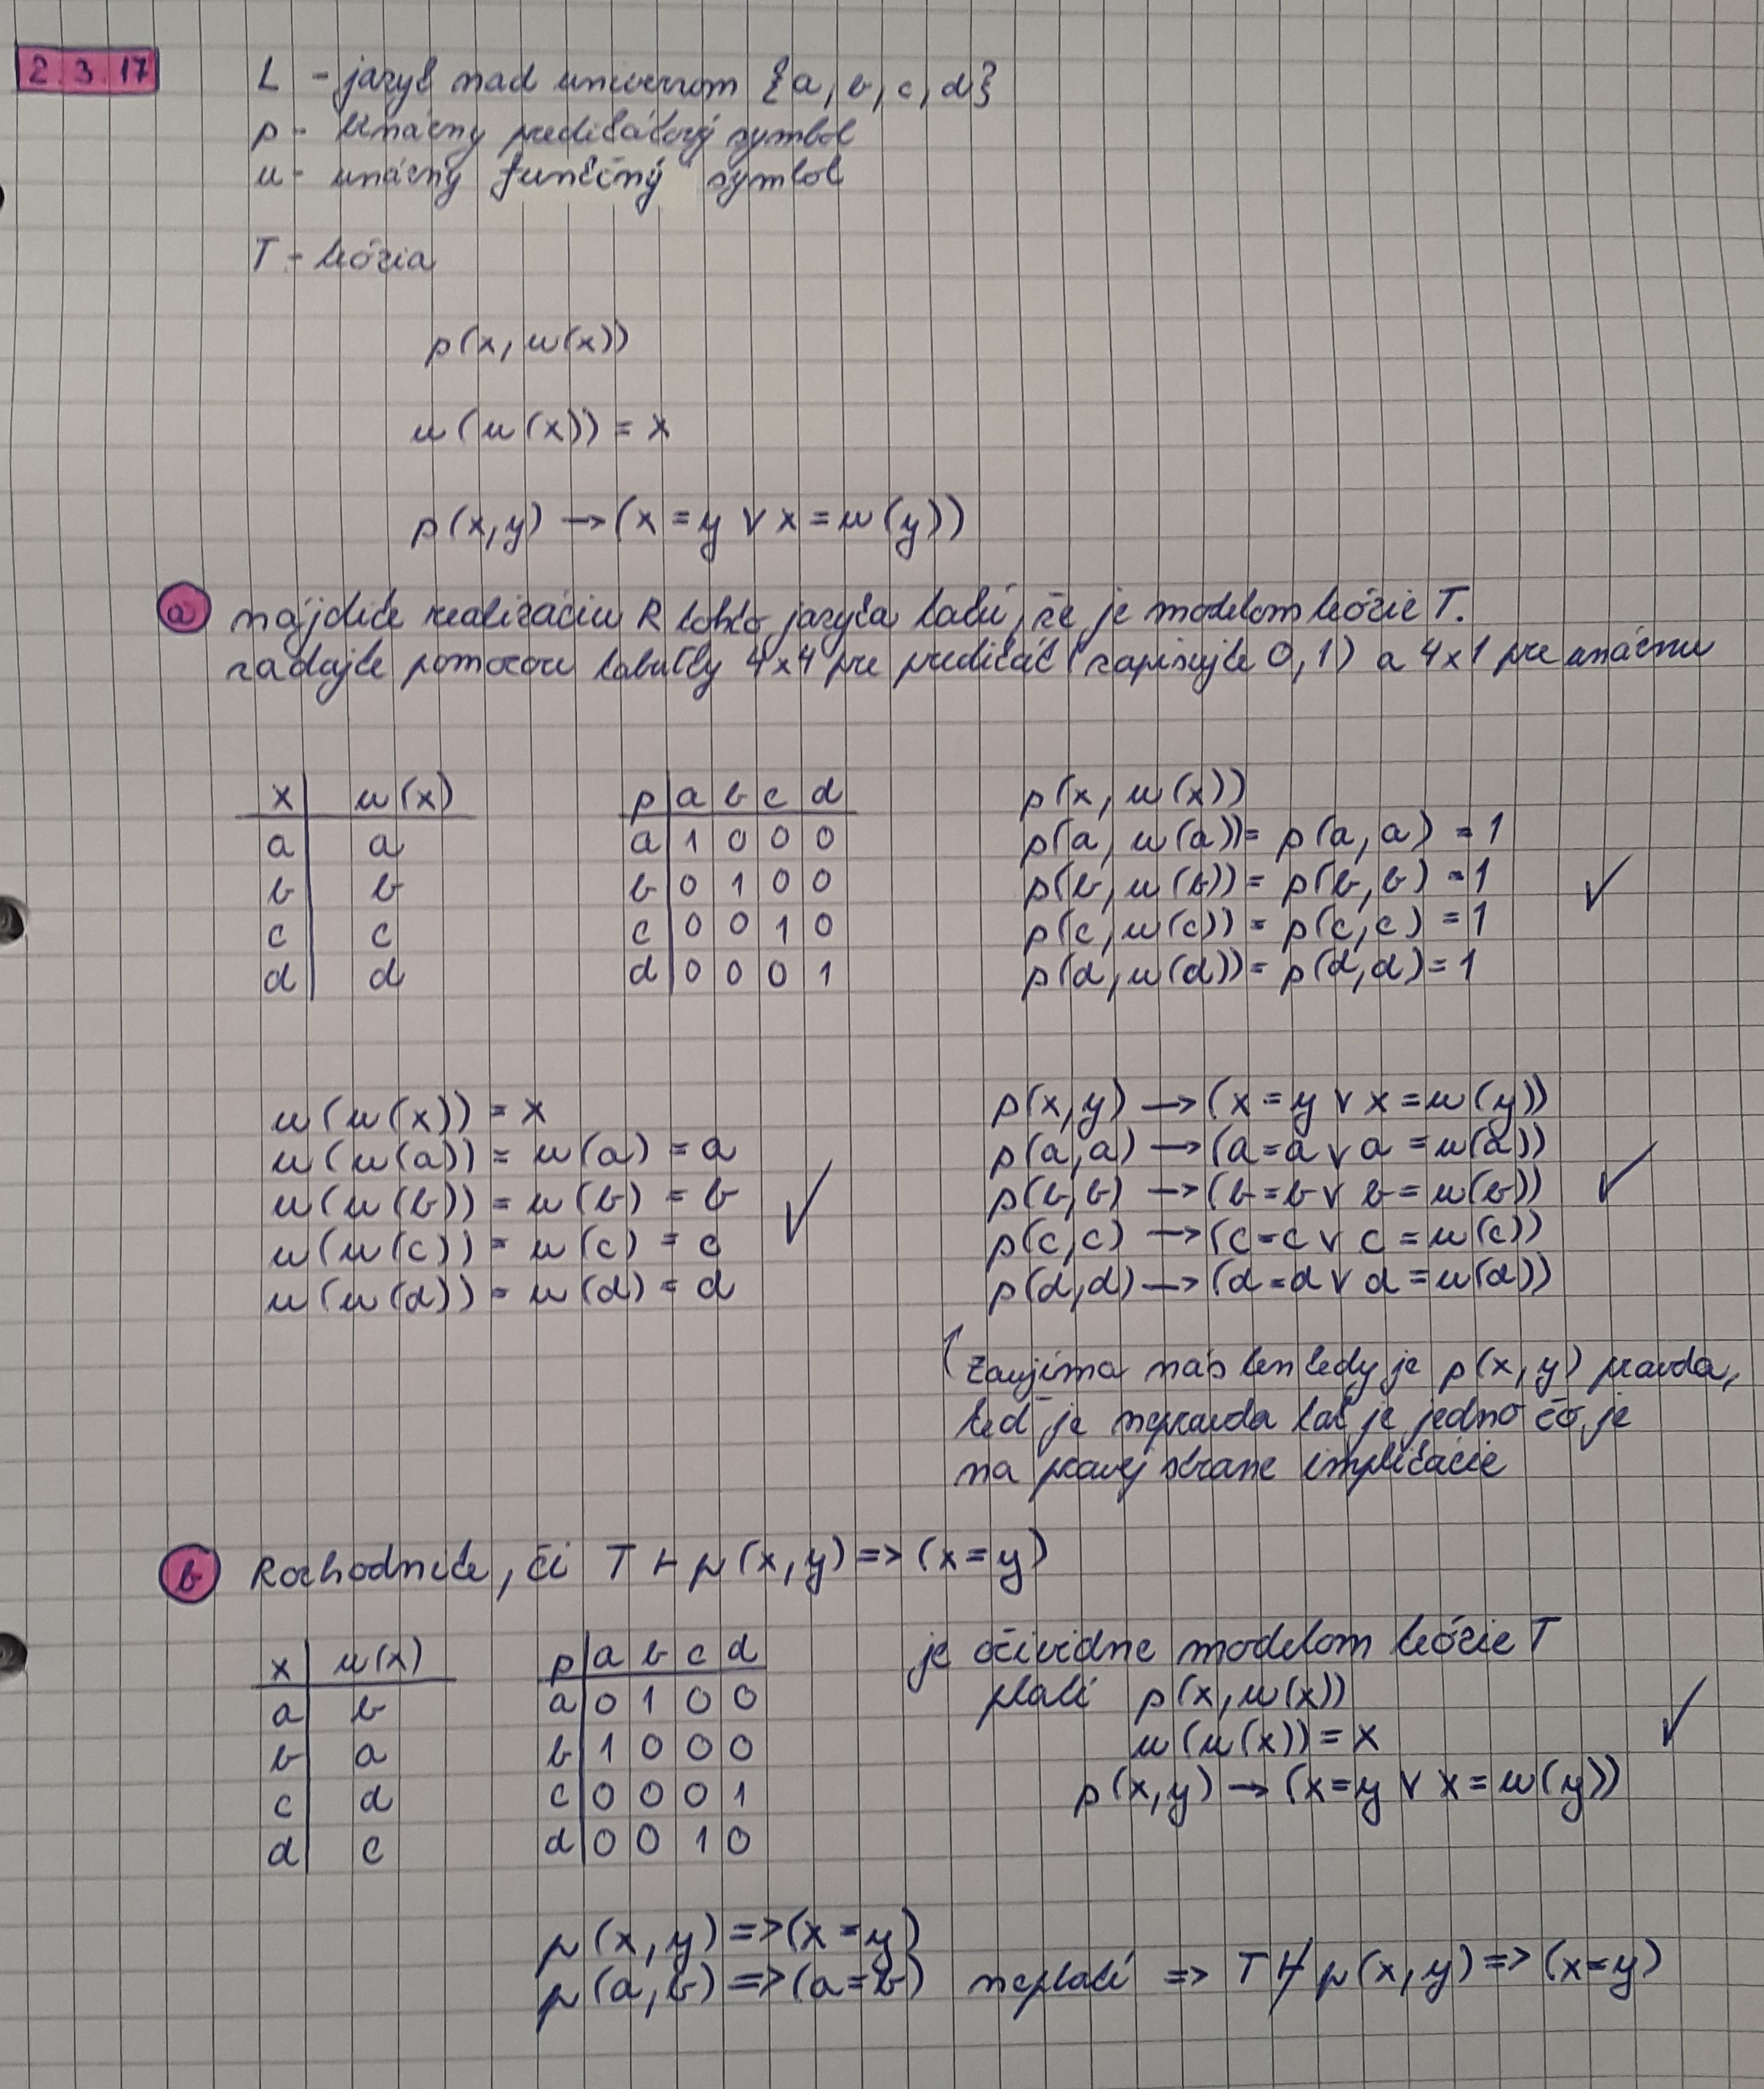 2.3.17
L - jazyk nad univerzom {a, b, c, d}
p - binárny predikátový symbol
u - unárny funkčný symbol
T - teória
p(x, u(x))
u(u(x)) = x
p(x,y) → (x = y ∨ x = u(y))
a) nájdite realizáciu R tohto jazyka takú, že je modelom teórie T.
zadajte pomocou tabuľky 4x4 pre predikát (zapisujte 0,1) a 4x1 pre unárnu
x | u(x)
a | a
b | b
c | c
d | d
p | a b c d
a | 1 0 0 0
b | 0 1 0 0
c | 0 0 1 0
d | 0 0 0 1
p(x, u(x))
p(a, u(a)) = p(a, a) = 1
p(b, u(b)) = p(b, b) = 1 ✓
p(c, u(c)) = p(c, c) = 1
p(d, u(d)) = p(d, d) = 1
u(u(x)) = x
u(u(a)) = u(a) = a
u(u(b)) = u(b) = b ✓
u(u(c)) = u(c) = c
u(u(d)) = u(d) = d
p(x,y) → (x = y ∨ x = u(y))
p(a,a) → (a = a ∨ a = u(a))
p(b,b) → (b = b ∨ b = u(b)) ✓
p(c,c) → (c = c ∨ c = u(c))
p(d,d) → (d = d ∨ d = u(d))
↑ zaujíma nás len kedy je p(x,y) pravda,
keď je nepravda tak je jedno čo je
na pravej strane implikácie
b) Rozhodnite, či T ⊢ p(x,y) => (x = y)
x | u(x)
a | b
b | a
c | d
d | c
p | a b c d
a | 0 1 0 0
b | 1 0 0 0
c | 0 0 0 1
d | 0 0 1 0
je očividne modelom teórie T
platí p(x, u(x))
u(u(x)) = x ✓
p(x,y) → (x = y ∨ x = u(y))
p(x,y) => (x = y)
p(a,b) => (a = b) neplatí => T ⊬ p(x,y) => (x = y)